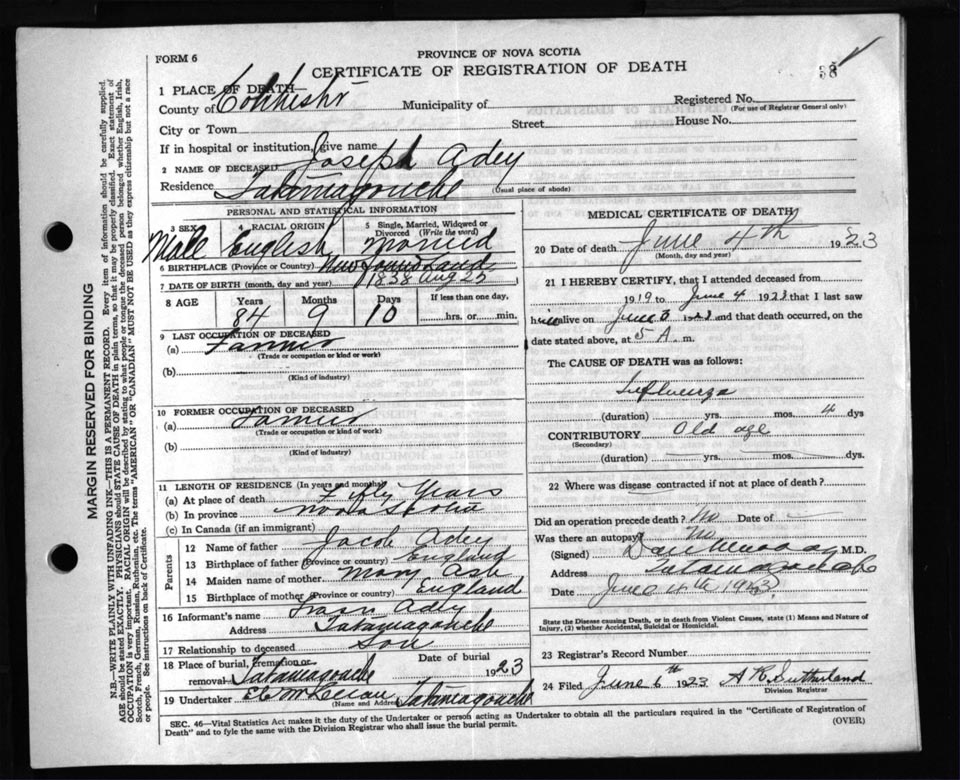 PROVINCE OF NOVA SCOTIA
FORM 6
CERTIFICATE OF REGISTRATION OF DEATH
38
1 PLACE OF DEATH—
County of Colchester Municipality of Registered No.
(For use of Registrar General only)
City or Town Street House No.
If in hospital or institution, give name
2 NAME OF DECEASED Joseph Adey
Residence Tatamagouche (Usual place of abode)
PERSONAL AND STATISTICAL INFORMATION
3 SEX Male
RACIAL ORIGIN English
5 Single, Married, Widowed or Divorced (Write the word) Married
6 BIRTHPLACE (Province or Country) Newfoundland
7 DATE OF BIRTH (month, day and year) 1838 Aug 25
8 AGE Years 84 Months 9 Days 10 If less than one day. hrs. or min.
9 LAST OCCUPATION OF DECEASED
(a) Farmer
(Trade or occupation or kind or work)
(b)
(Kind of industry)
10 FORMER OCCUPATION OF DECEASED
(a) Farmer
(Trade or occupation or kind or work)
(b)
(Kind of industry)
11 LENGTH OF RESIDENCE (In years and months)
(a) At place of death Fifty Years
(b) In province Nova Scotia
(c) In Canada (if an immigrant)
Parents
12 Name of father Jacob Adey
13 Birthplace of father (Province or country) England
14 Maiden name of mother Mary Ash
15 Birthplace of mother (Province or country) England
16 Informant's name Adey
Address Tatamagouche
17 Relationship to deceased Son
18 Place of burial, cremation or removal Tatamagouche Date of burial 1923
19 Undertaker Tatamagouche
(Name and Address)
MEDICAL CERTIFICATE OF DEATH
20 Date of death June 4th 1923
(Month, day and year)
21 I HEREBY CERTIFY, that I attended deceased from
1919 to June 4 1923 that I last saw
him alive on June 3 1923 and that death occurred, on the
date stated above, at 5 A. m.
The CAUSE OF DEATH was as follows:
Influenza
(duration) yrs. mos. 4 dys
CONTRIBUTORY Old age
(Secondary)
(duration) yrs. mos. dys.
22 Where was disease contracted if not at place of death?
Did an operation precede death? No Date of
Was there an autopsy? No
(Signed) M.D.
Address Tatamagouche
Date June 4th 1923
State the Disease causing Death, or in death from Violent Causes, state (1) Means and Nature of Injury, (2) whether Accidental, Suicidal or Homicidal.
23 Registrar's Record Number
24 Filed June 6th 1923 A R Sutherland
Division Registrar
SEC. 46—Vital Statistics Act makes it the duty of the Undertaker or person acting as Undertaker to obtain all the particulars required in the "Certificate of Registration of
Death" and to fyle the same with the Division Registrar who shall issue the burial permit.
(OVER)
MARGIN RESERVED FOR BINDING
N.B.—WRITE PLAINLY WITH UNFADING INK—THIS IS A PERMANENT RECORD. Every item of information should be carefully supplied.
AGE should be stated EXACTLY. PHYSICIANS should STATE CAUSE OF DEATH in plain terms, so that it may be properly classified. Exact statement of
OCCUPATION is very important. RACIAL ORIGIN will be described by stating to what people or tongue the deceased person belonged whether English, Irish,
Scotch, French, German, Russian, Ruthenian, etc. The terms "AMERICAN" OR "CANADIAN" MUST NOT BE USED as they express citizenship but not a race
or people. See instructions on back of Certificate.